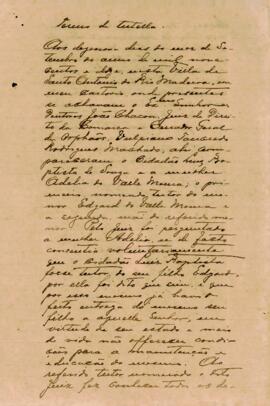 Termo de tutella.
Aos dezenove dias do mez de Se-
tembro do anno de mil nove
centos e doze, nesta Villa de
Santo Antonio do Rio Madeira, em
meu cartorio onde presentes
se achavam o Senhores
Doutores João Chacon, Juiz de Direi-
to da Comarca e Curador Geral
de Orphãos,
Rodrigues Machado, ahi com-
pareceram o Cidadão Luiz Ba-
ptista de Souza e a mulher
Adelia do Valle Moura; o pri-
meiro nomeado tutor do me-
nor Edgard do Valle Moura
e a segunda, mãe do referido me-
nor. Pelo Juiz foi perguntado
a mulher Adelia, se de facto
consentia voluntariamente
que o Cidadão Luiz Baptista
fosse tutor do seu filho Edgard,
por ella foi dito que sim, e que
por isso mesmo já havia
feito entrega do mesmo seu
filho a aquelle Senhor, em
virtude de seu estado e meio
de vida não offerecer condi-
ções para a manutenção e
educação do mesmo. Ao
referido tutor nomeado o dito
Juiz fez conhecer todos os de-